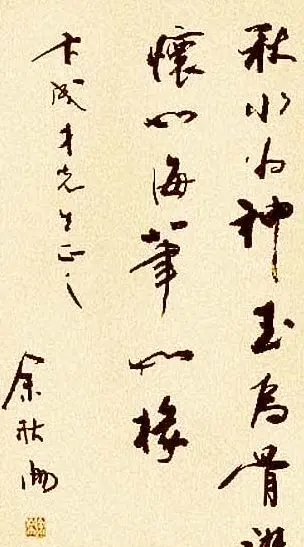 秋水为神玉为骨
懷如海筆如椽
卞成才先生正之
余秋雨